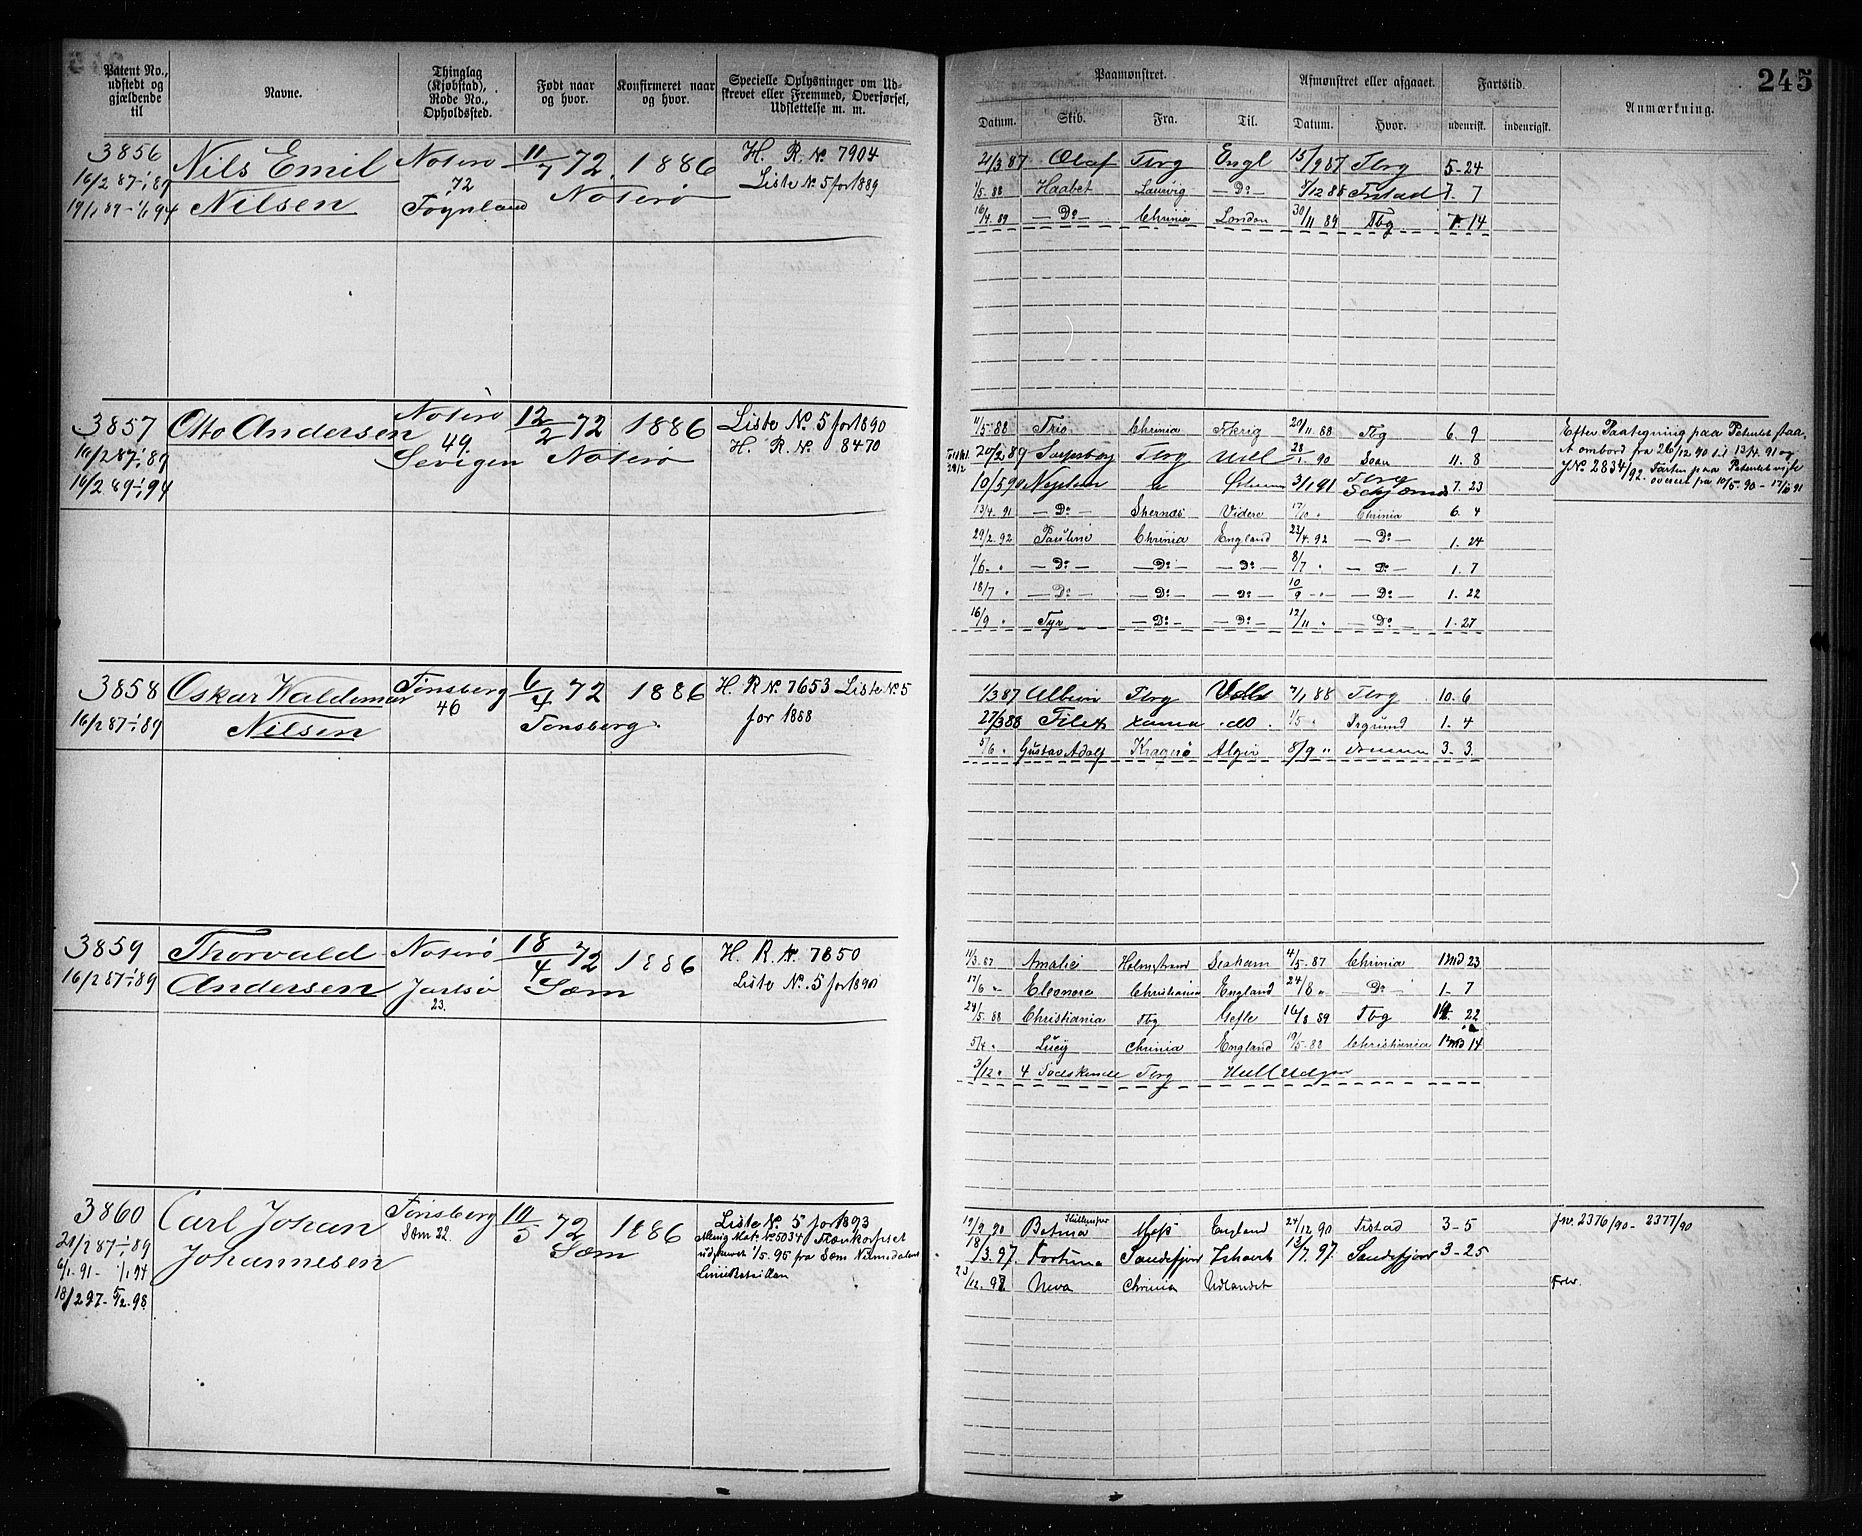 245
Patent No., udstedt og gjældende til
Navne.
Thinglag (Kjøbstad), Rode No., Opholdssted.
Født naar og hvor.
Konfirmeret naar og hvor.
Specielle Oplysninger om Udskrevet eller Fremmed, Overførsel, Udslettelse m. m.
Paamønstret.
Afmønstret eller afgaaet.
Fartstid.
Anmærkning.
Datum. Skib. Fra. Til. Datum. Hvor. udenrigsk. indenrigsk.
3856 Nils Emil Nøterø 11/7 72 1886 H. R. No 7904
16/2 87-1/1 89 Nilsen 72 Nøterø Liste No 5 for 1889
19/1 89-1/1 94 Føynland
21/3 87 Olaf Tbrg Engl 15/9 87 Tbrg 5-24
1/5 88 Haabet Laurvig - Do - 7/12 88 7. 7
16/4 89 - Do - Chrinia London 30/11 89 Tbg 7. 14
3857 Otto Andersen Nøterø 12/2 72 1886 Liste No 5 for 1890
16/2 87-1/1 89 49. Nøterø H. R. No 8470
16/2 89-1/1 94
11/5 88 Trio Chrinia 20/11 88 Tbg 6. 9
20/2 89 Sarpsborg Tbrg 28/1 90 11. 8
10/5 90 3/1 91 Tbrg 7. 23
13/4 91 - Do - Videre 17/10 " Chrinia 6. 4
29/2 92 Pauline Chrinia England 23/4 92 - Do - 1. 24
1/6 " - Do - - Do - - Do - 8/7 " - Do - 1. 7
18/7 " - Do - - Do - - Do - 10/9 " - Do - 1. 22
16/9 " Tyr - Do - - Do - 12/11 " - Do - 1-27
Efter Paategning paa Patentet staa.
t ombord fra 26/12 90 til 13/4 91 og
J No 2834/92. Farten paa Patentet
fra 10/5 90 - 17/10 91
3858 Oskar Waldemar Tønsberg 6/4 72 1886 H. R No 7653 Liste No 5
16/2 87-1/1 89 Nilsen 46 Tønsberg. for 1888
1/3 87 Albion Tbrg 7/1 88 Tbrg 10. 6
27/3 88 do 1/5 " 1. 4
5/6 " Gustav Adolf Kragerø Algier 8/9 " 3-3.
3859 Thorvald Nøterø 18/4 72 1886 H. R. No 7850
16/2 87-1/1 89 Andersen Jarlsø Sæm Liste No. 5 for 1890
23.
11/3 87 Amalie Holmstrand Seaham 4/5-87 Chrinia 1 md 23
17/6 " Eleonore Christiania England 24/8 " Do 1- 7
24/5 88 Christiania Tbg Gefle 16/8 89 Tbg 14. 22
5/4 " Lucy Chrinia England 19/5-88 Christiania 1 md 14
3/12 " 4 Sødskende Tbrg Hull Udgår
3860 Carl Johan Tønsberg 10/5 72 1886 Liste No 5 for 1893
21/2 87-1/1 89 Johannesen Sæm 22. Sæm Menig Mat. No 5034
6/1. 91- 1/1 94 1/5-95 fra Sæm
18/2 97-5/2-98
19/9 90 Betzuia England 24/12 90 3-5 Jnr. 2376/90- 2377/90
18/3. 97. Fortuna Sandefjord 13/7. 97. Sandefjord 3-25
23/12. 97 Neva Chrinia Udlandet